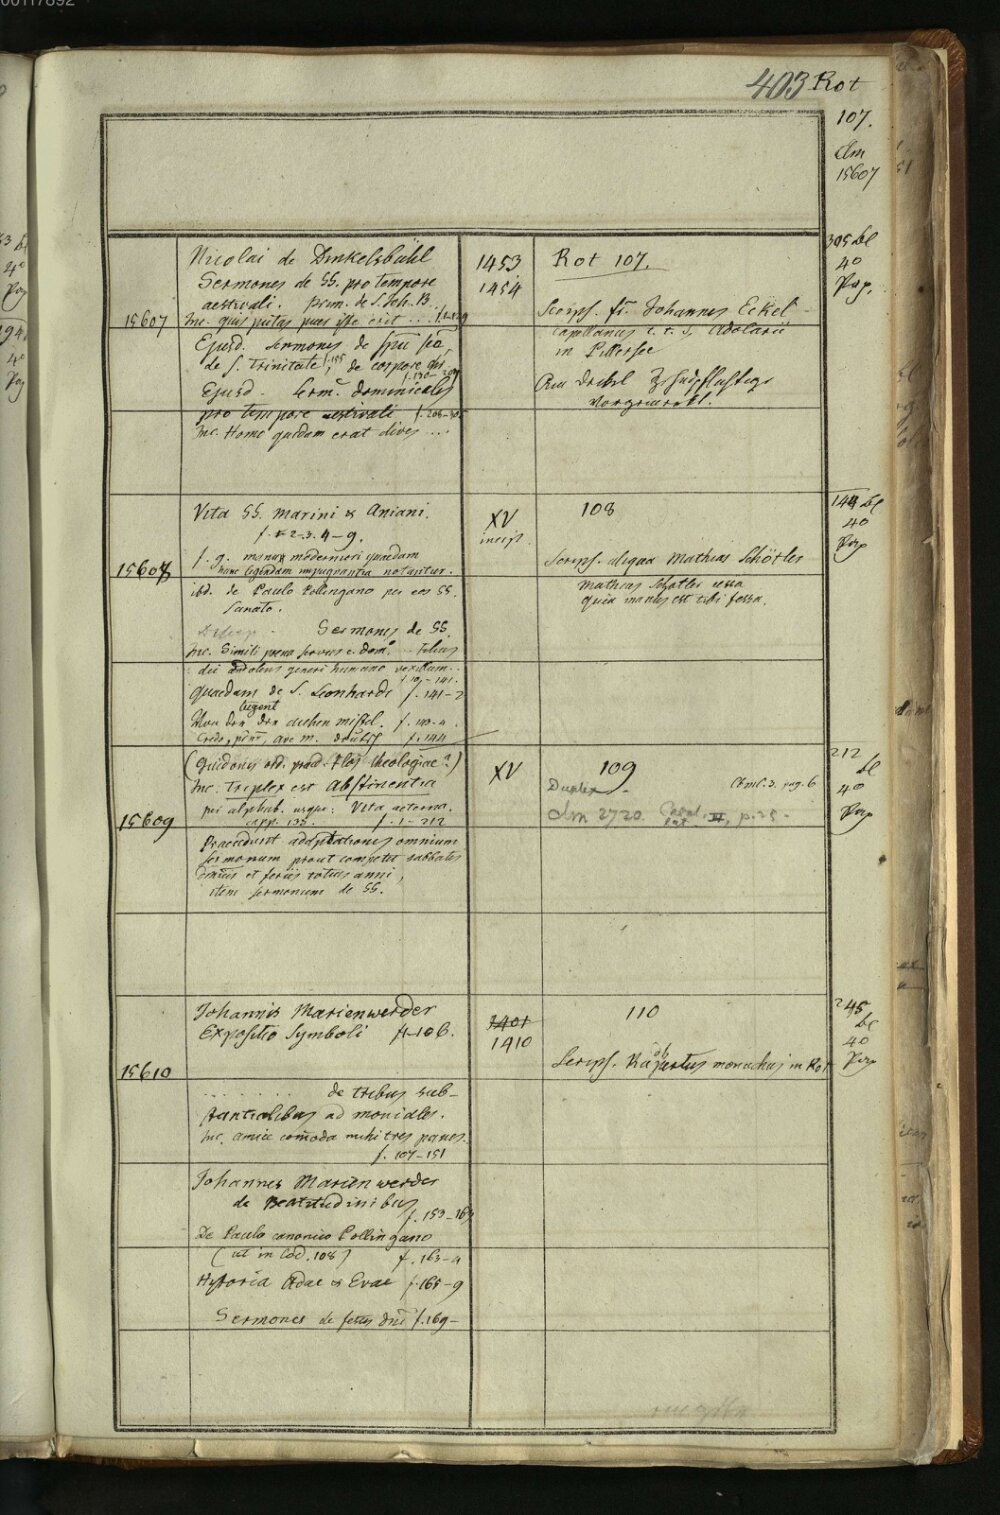 00117892
403 Rot
107.
Clm
15607
15607
Nicolai de Dinkelsbühl
Sermones de SS. pro tempore
aestivali. prim. de S. Joh. B.
Inc. quis putas puer iste erit ... f. 1-129
Ejusd. sermones de spu sco,
de S. Trinitate f. 155, de corpore
f. 130-207
Ejusd. Serm. dominicales
pro tempore aestivali f. 208-305
Inc. Homo quidam erat dives ...
1453
1454
Rot 107.
Scrips. fr. Johannes Eckel
capellanus Adolarii
in Pillersee
Am Deckel
vorgemerkt.
305 bl
4o
Pap.
15608
Vita SS. Marini & Aniani.
f. 1-2-3. 4-9.
f. 9. manus modernior quaedam
hanc legendam impugnantia notantur.
ibid. de Paulo Pollingano per eos SS.
sanato.
Sermones de SS.
Inc. Simili pena servus c. dom. Filius
dei adolens generi humano vexillum ..
f. 10-141.
Quaedam de S. Leonhardo f. 141-2
Von den aichen mistel. f. 143-4.
Credo, Ave M. deutsch f. 144
XV
incip.
108
Scrips. aliqua Mathias Schötler
Mathias Schotler cessa
quia manus est tibi fessa.
144 bl
4o
Pap
15609
(Guidonis ord. praed. Flos theologiae?)
Inc. Triplex est abstinentia
per alphab. usque: Vita aeterna.
capp. 135. f. 1-212
Praecedunt adaptationes omnium
sermonum prout competit sabbatis
et feriis totius anni,
item sermonum de SS.
XV
109
Duplex
Cbml. 3. pag. 6
Clm 2720. II, p. 25.
212
bl
4o
Pap
15610
Johannis Marienwerder
Expositio Symboli f. 1-106.
. . . . . . . . de tribus sub-
stantialibus ad moniales.
Inc. Amice comoda michi tres panes.
f. 107-151
Johannes Marienwerder
de Beatitudinibus
f. 153-163
De Paulo canonico Pollingano
(ut in Cod. 108) f. 163-4
Hystoria Adae & Evae f. 165-9
Sermones de festis dni f. 169-
1401
1410
110
Scrips. monachus in Rot
245
bl
4o
Pap